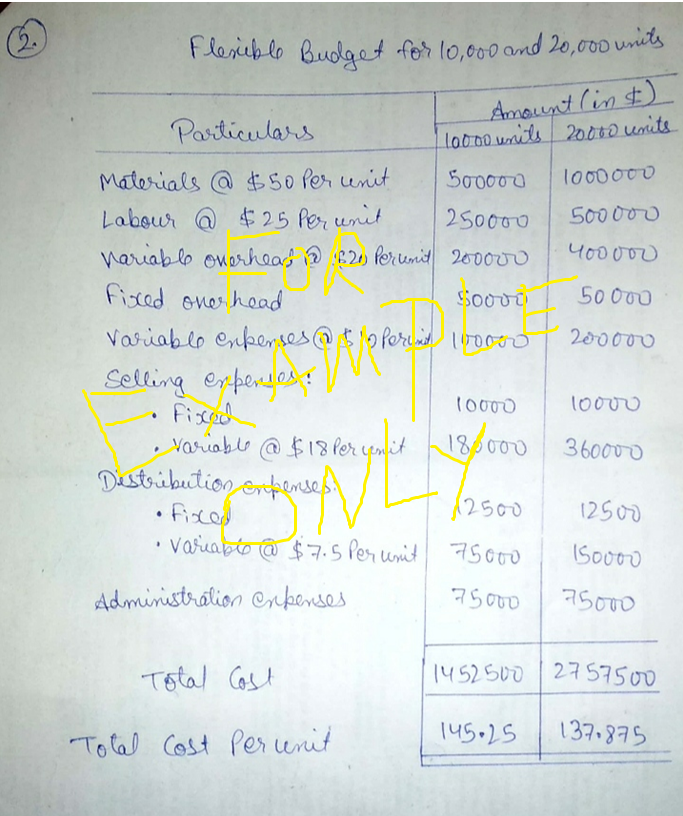 2.
Flexible Budget for 10,000 and 20,000 units
Amount (in $)
Particulars 10000 units 20000 units
Materials @ $50 Per unit 500000 1000000
Labour @ $25 Per unit 250000 500000
Variable overhead @ $20 Per unit 200000 400000
Fixed overhead 50000 50000
Variable expenses @ $10 Per unit 100000 200000
Selling expenses:
• Fixed 10000 10000
• Variable @ $18 Per unit 180000 360000
Distribution expenses:
• Fixed 12500 12500
• Variable @ $7.5 Per unit 75000 150000
Administration expenses 75000 75000
Total Cost 1452500 2757500
Total Cost Per unit 145.25 137.875
FOR
EXAMPLE
ONLY